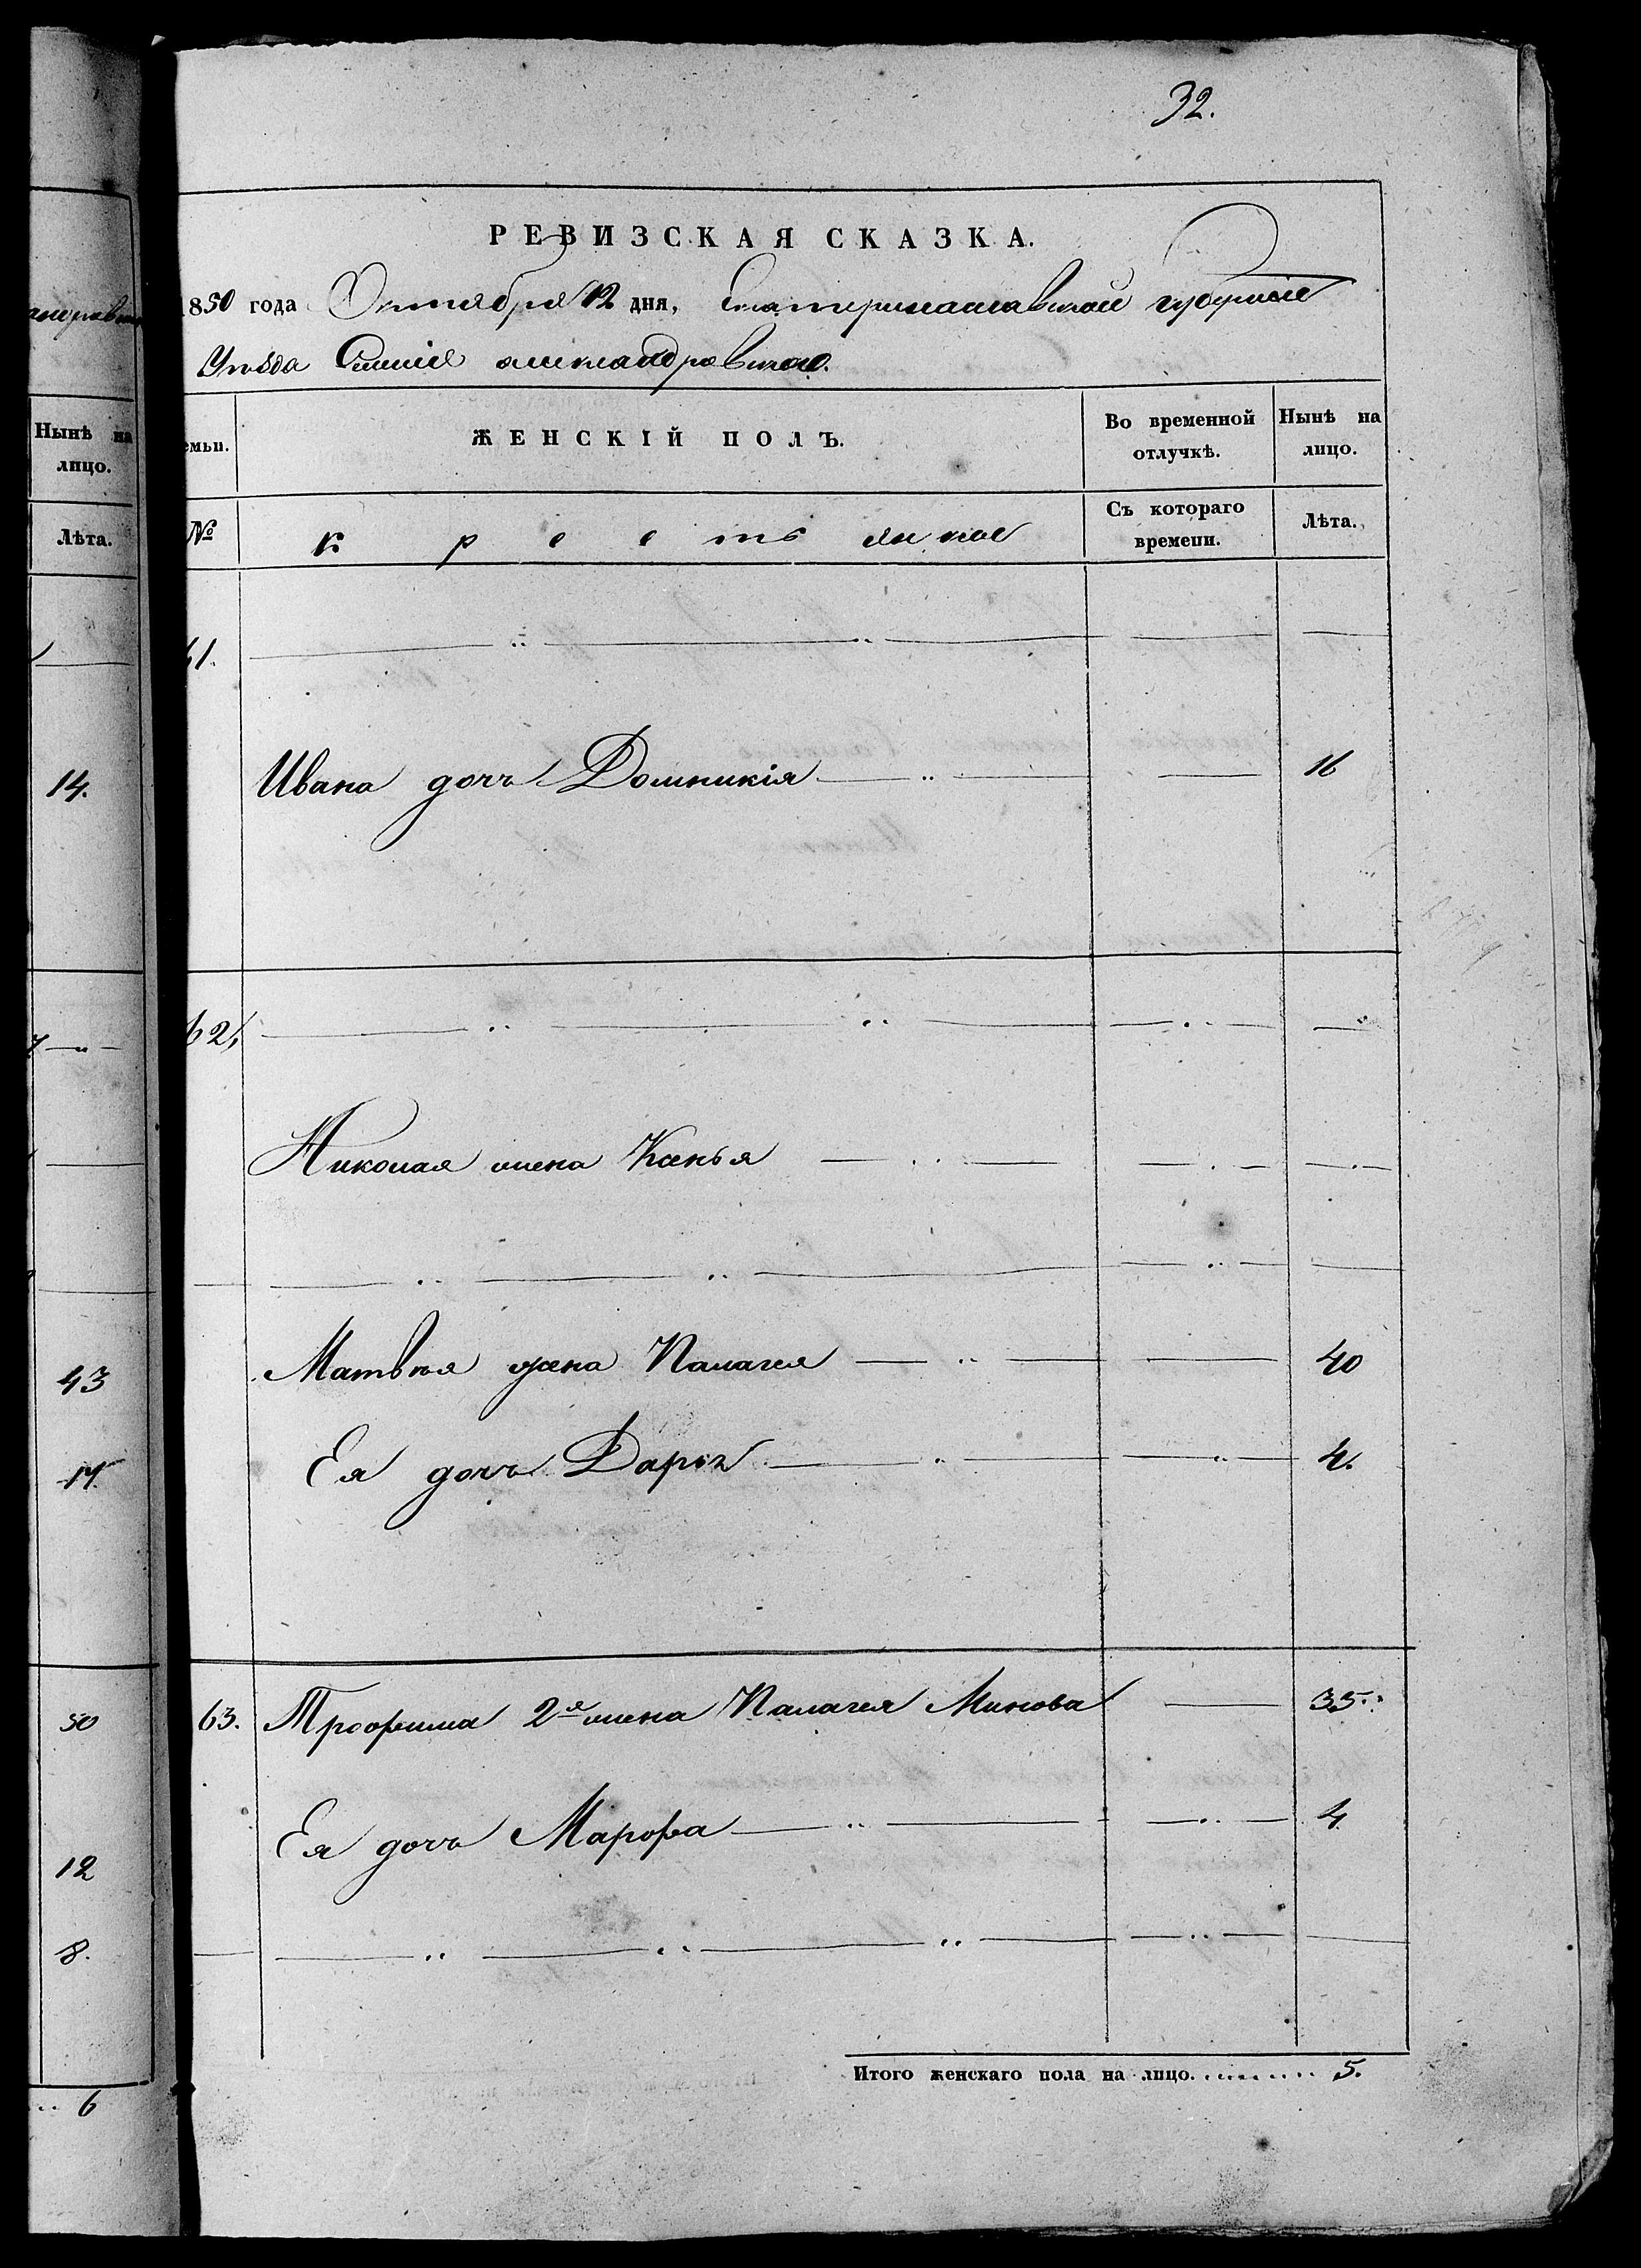 32.
РЕВИЗСКАЯ СКАЗКА.
850 года Октября 12 дня, Екатеринославской губерніи
Уѣзда Александровскаго.
Нынѣ на лицо.
Лѣта.
емьи.
ЖЕНСКІЙ ПОЛЪ.
Во временной отлучкѣ.
Нынѣ на лицо.
№
крестьянкое
Съ котораго времени.
Лѣта.
61.
14.
Ивана дочь Домникія 16
62,
Николая жена Ксенья
43
Матвѣя жена Палагея 40
14.
Ея дочь Дарья 4.
50
63. Трофима 2я жена Палагея Минова 35.
12
Ея дочь Марфа 4
8.
Итого женскаго пола на лицо. 5.
6